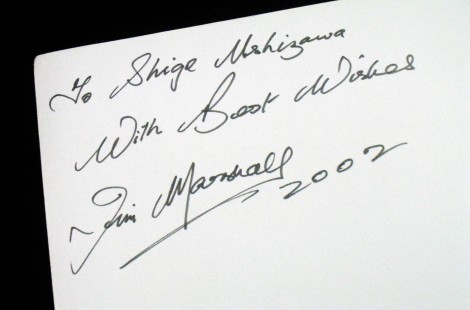 To Shige Nishizawa
With Best Wishes
~ Jim Marshall
2002